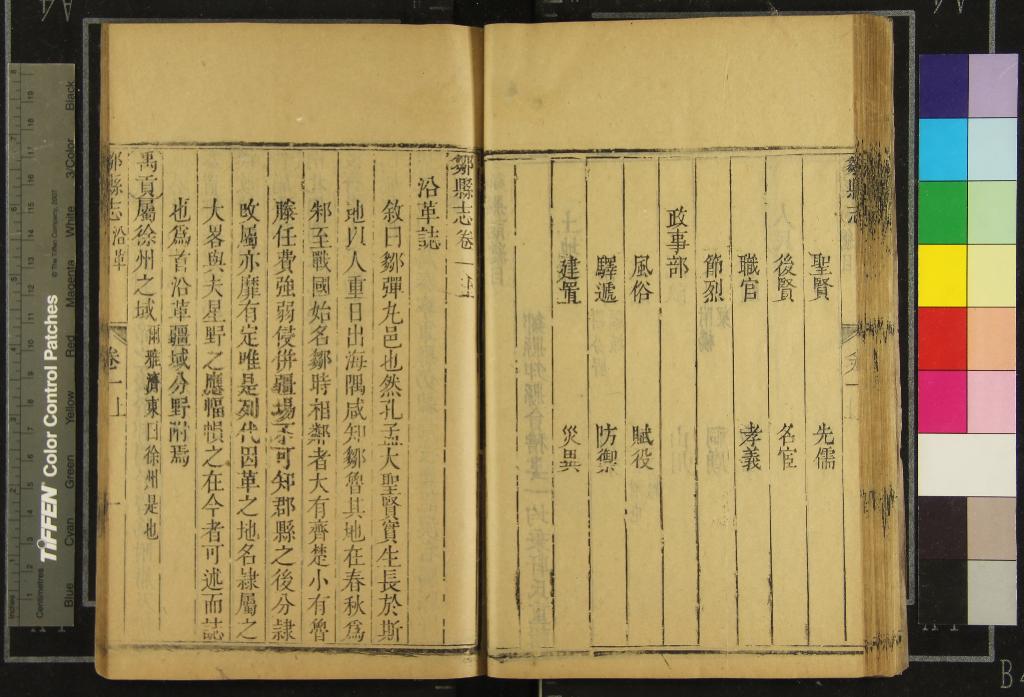 聖賢 先儒
後賢 名宦
職官 孝義
節烈
政事部
風俗 賦役
驛遞 防禦
建置 災異
鄒縣志卷一上
沿革誌
敘曰鄒彈丸邑也然孔孟大聖賢實生長於斯
地以人重日出海隅咸知鄒魯其地在春秋爲
邾至戰國始名鄒時相鄰者大有齊楚小有魯
滕任費強弱侵併疆場不可知郡縣之後分隸
改屬亦靡有定唯是列代因革之地名隸屬之
大畧與夫星野之應幅幀之在今者可述而誌
也爲首沿革疆域分野附焉
禹貢屬徐州之域爾雅濟東曰徐州是也
鄒縣志 沿革 卷一上 一
TIFFEN Color Control Patches
© The Tiffen Company, 2007
Centimetres
Inches
Blue Cyan Green Yellow Red Magenta White 3/Color Black